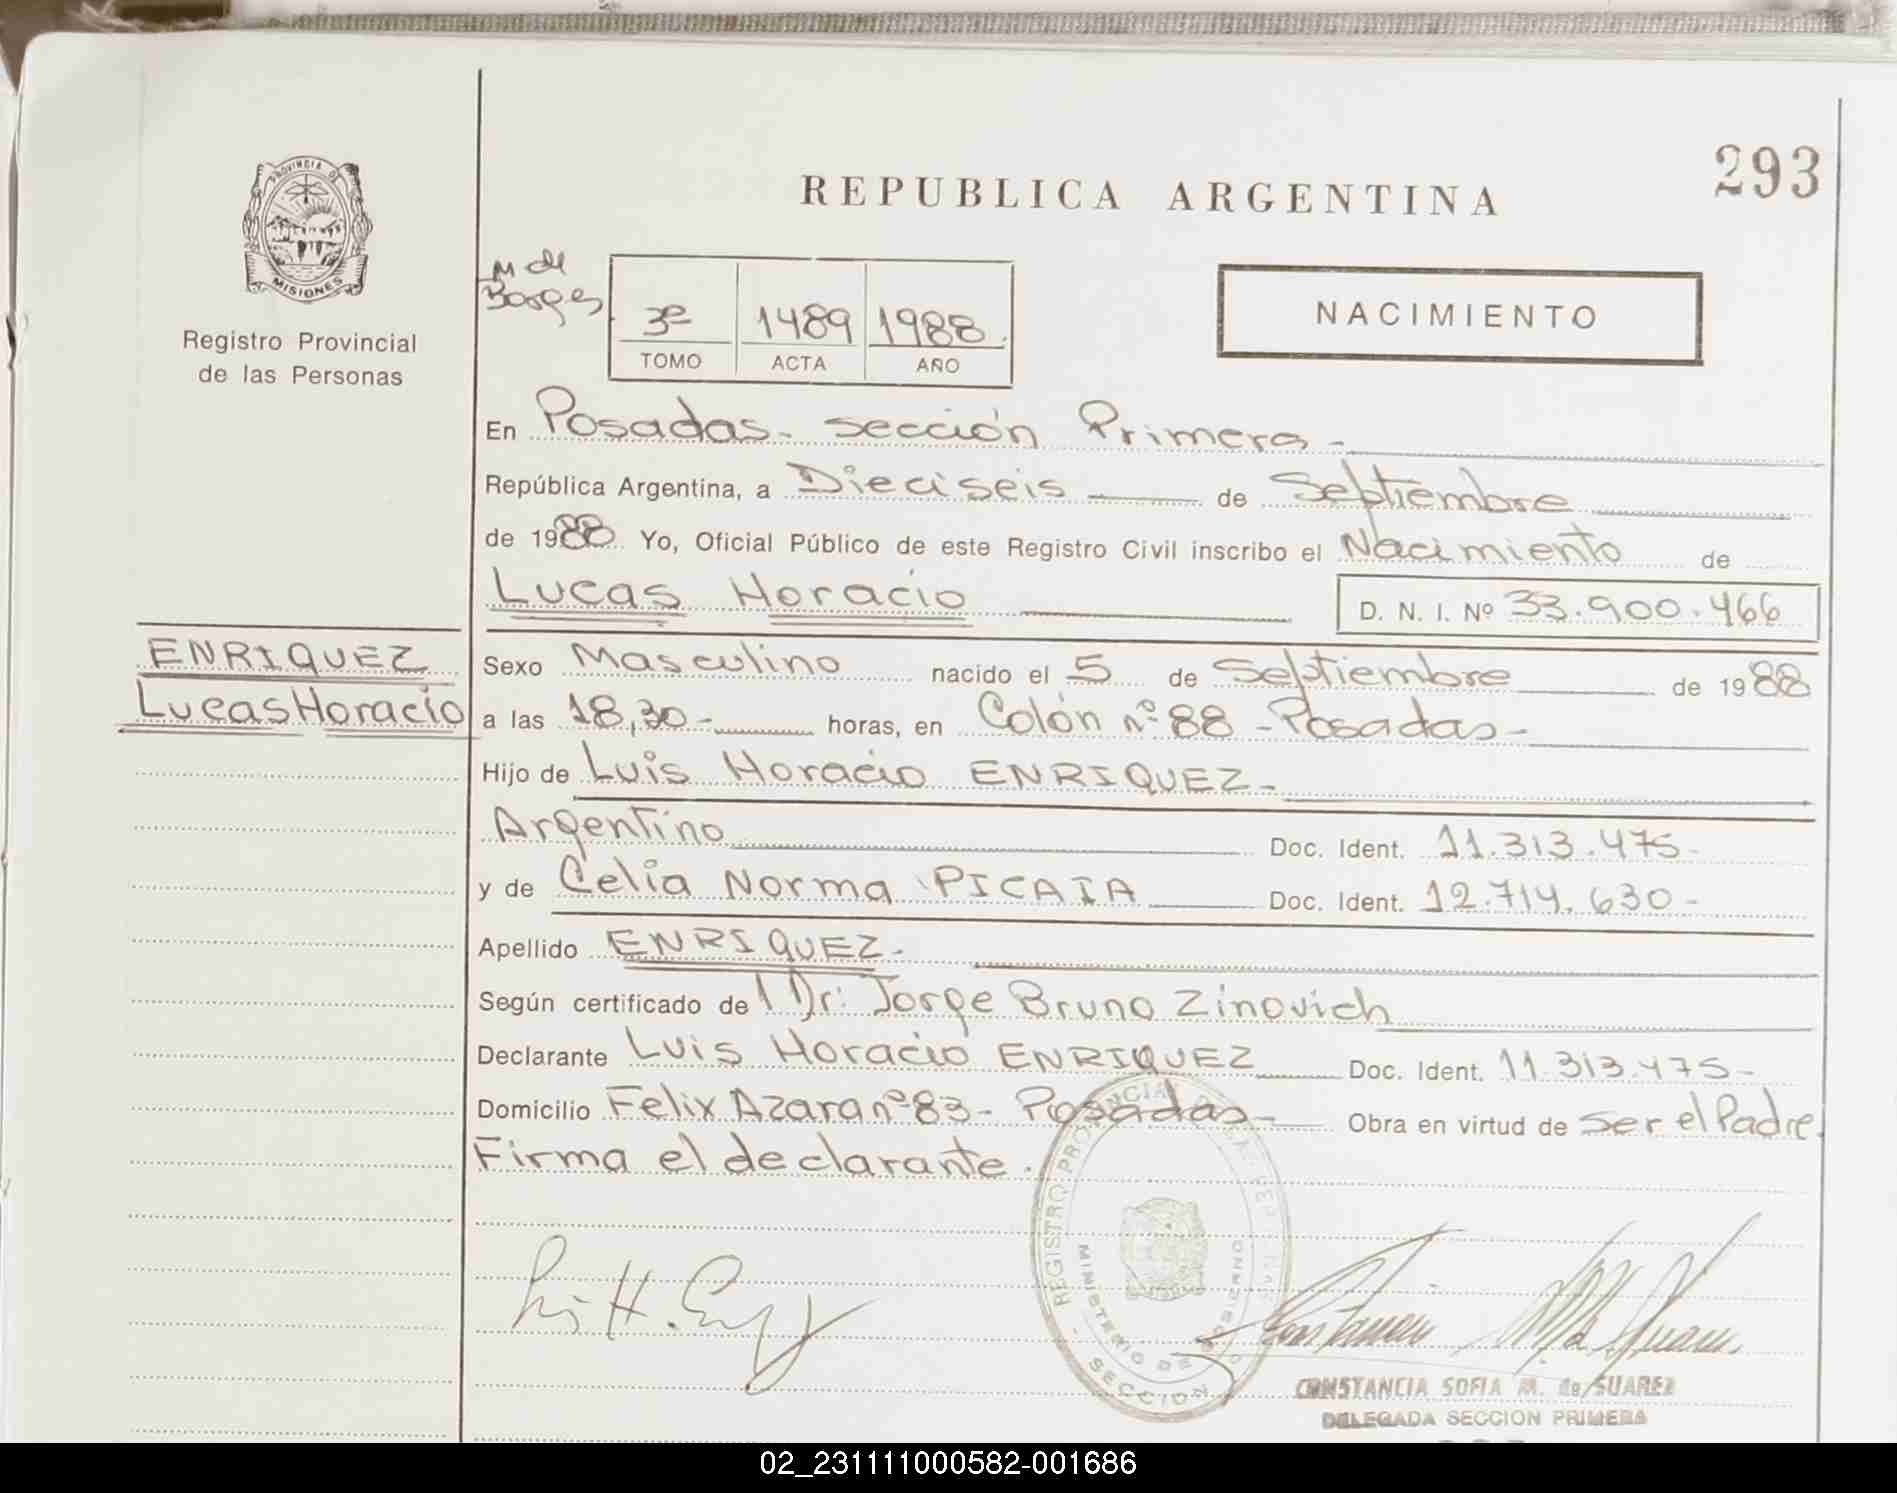 293
REPUBLICA ARGENTINA
PROVINCIA DE
MISIONES
Registro Provincial
de las Personas
M de
Borges
3º 1489 1988.
TOMO ACTA AÑO
NACIMIENTO
En Posadas - Sección Primera -
República Argentina, a Dieciseis de Septiembre
de 1988 Yo, Oficial Público de este Registro Civil inscribo el Nacimiento de
Lucas Horacio
D. N. I. Nº 33.900.466
ENRIQUEZ
Lucas Horacio
Sexo Masculino nacido el 5 de Septiembre de 1988
a las 18,30- horas, en Colón nº 88 - Posadas -
Hijo de Luis Horacio ENRIQUEZ -
Argentino Doc. Ident. 11.313.475-
y de Celia Norma PICAIA Doc. Ident. 12.714.630-
Apellido ENRIQUEZ -
Según certificado del Dr. Jorge Bruno Zinovich
Declarante Luis Horacio ENRIQUEZ Doc. Ident. 11.313.475-
Domicilio Felix Azara nº 83 - Posadas - Obra en virtud de Ser el Padre.
Firma el declarante.
REGISTRO PROVINCIAL DE LAS
MINISTERIO DE GOBIERNO
SECCION
CONSTANCIA SOFIA M. de SUAREZ
DELEGADA SECCION PRIMERA
02_231111000582-001686